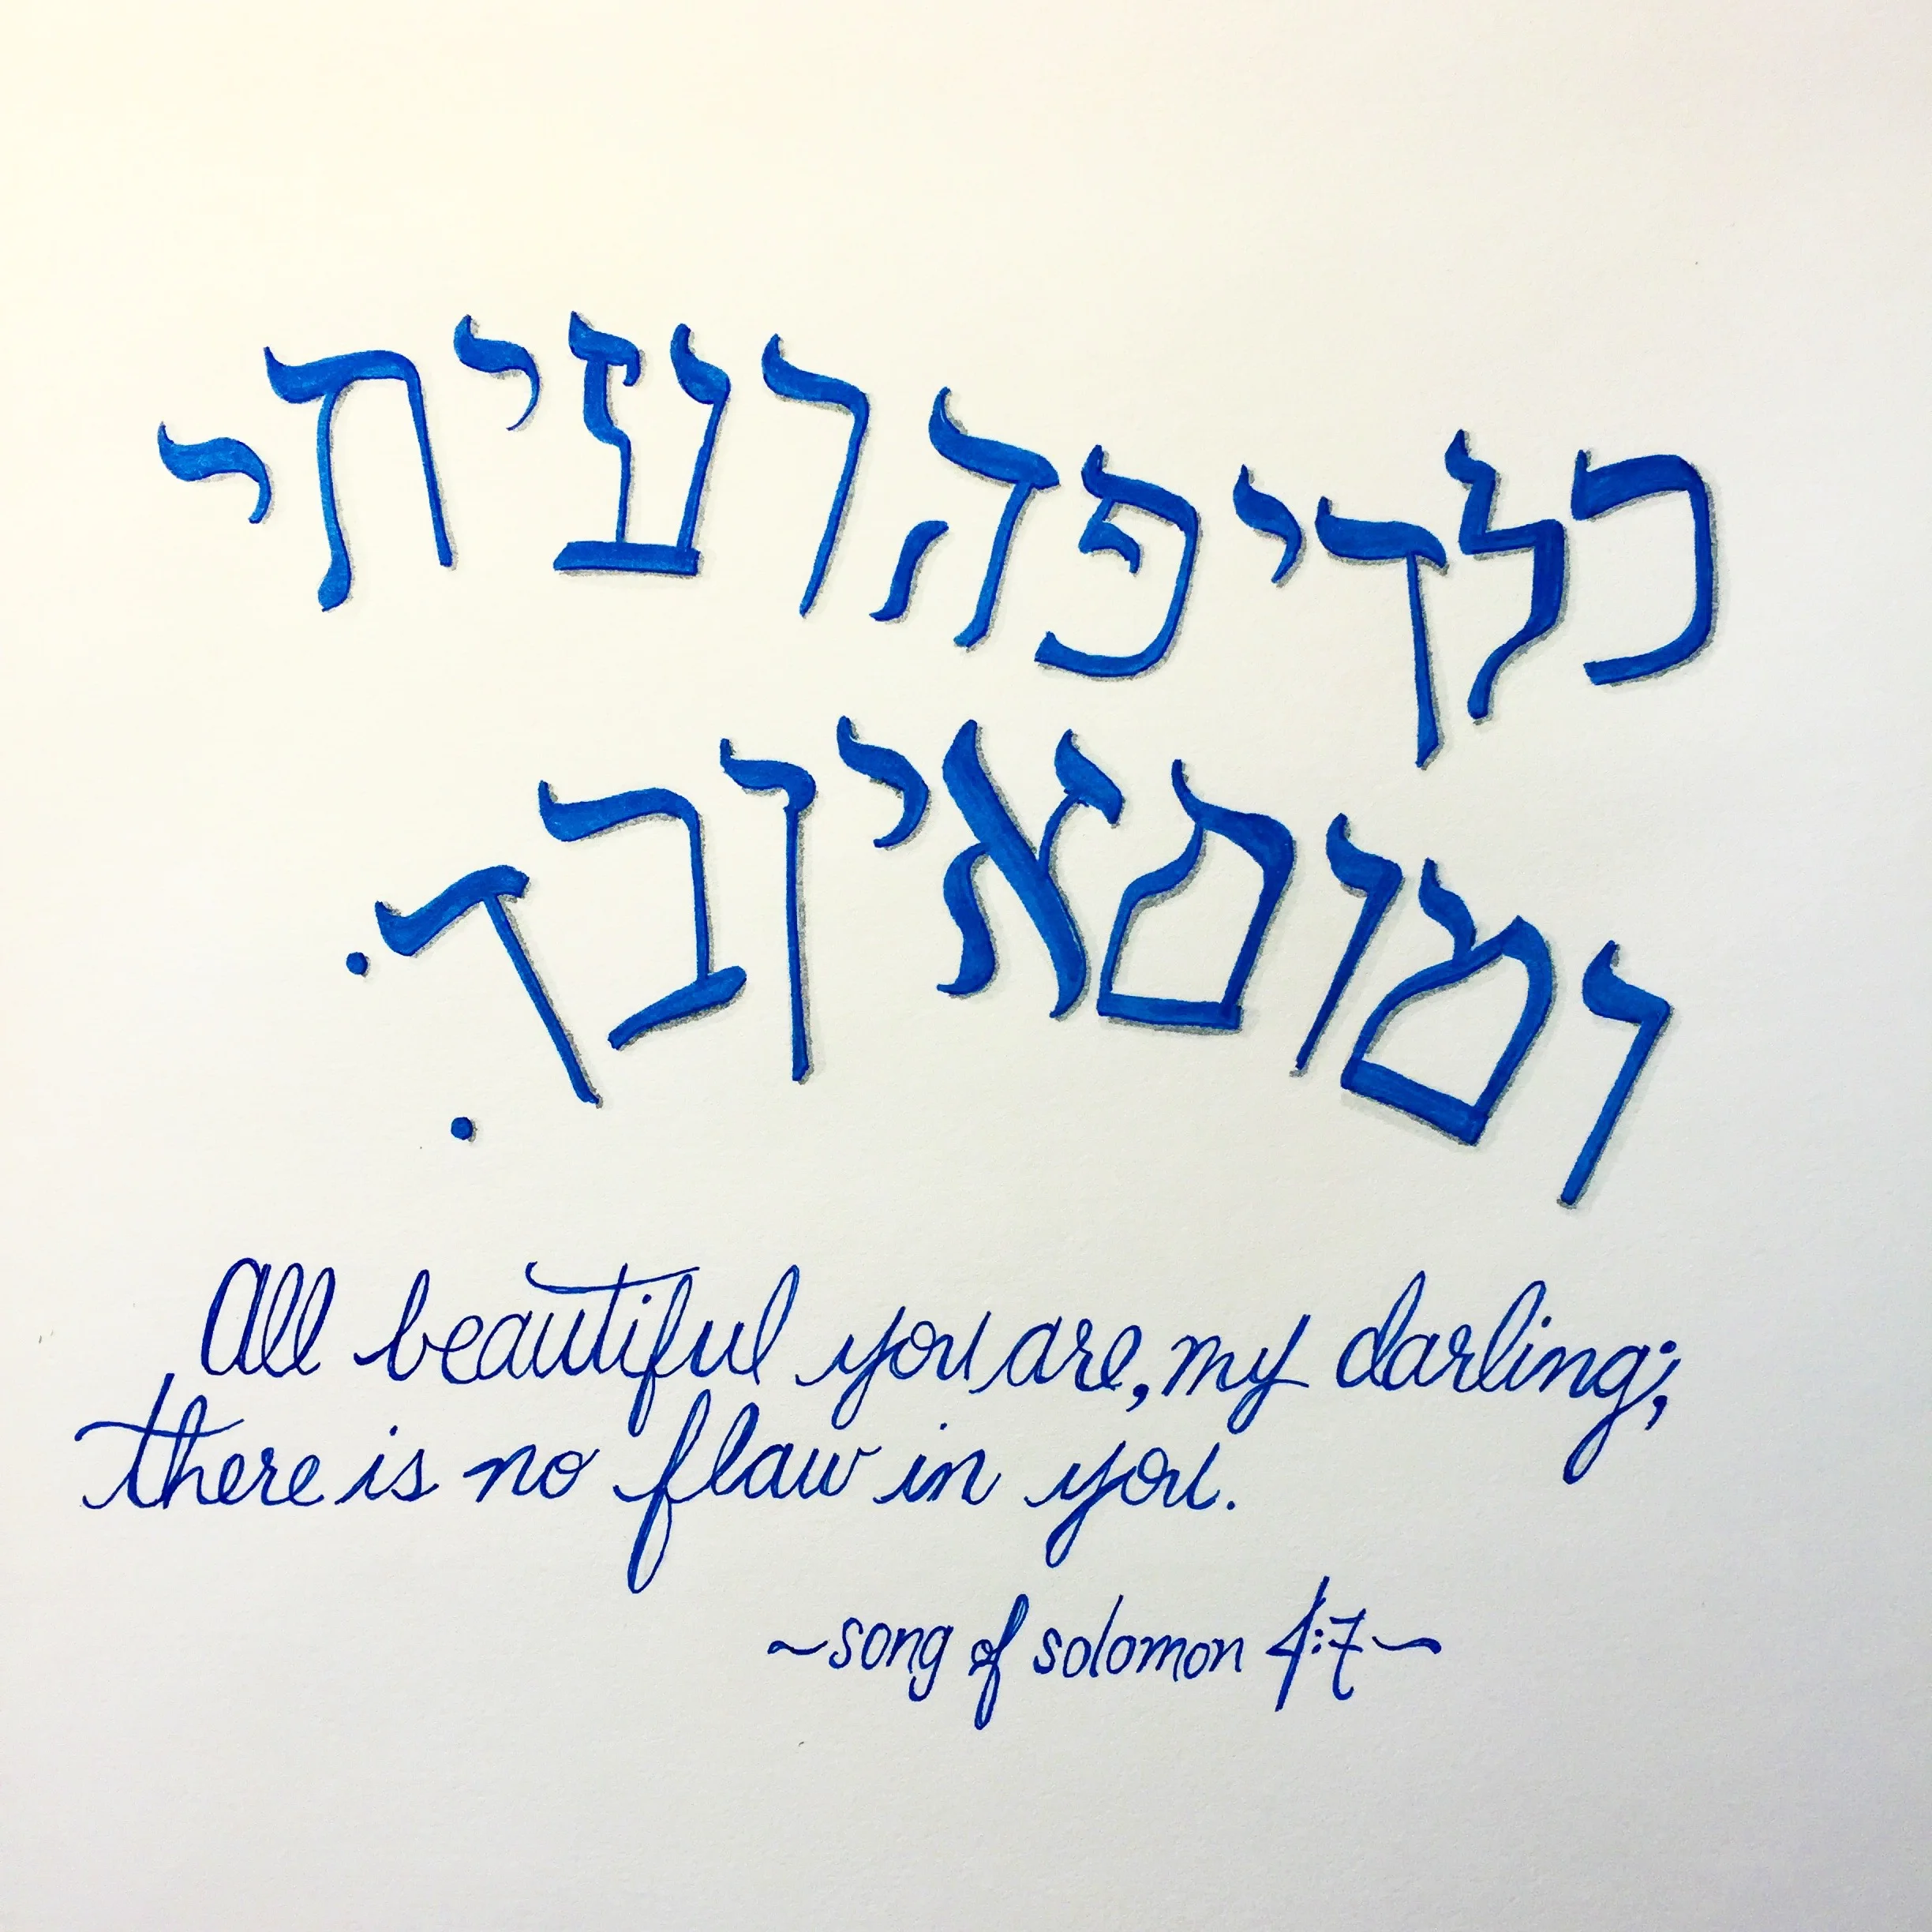 כלך יפה רעיתי
ומום אין בך:
All beautiful you are, my darling;
there is no flaw in you.
~song of solomon 4:7~